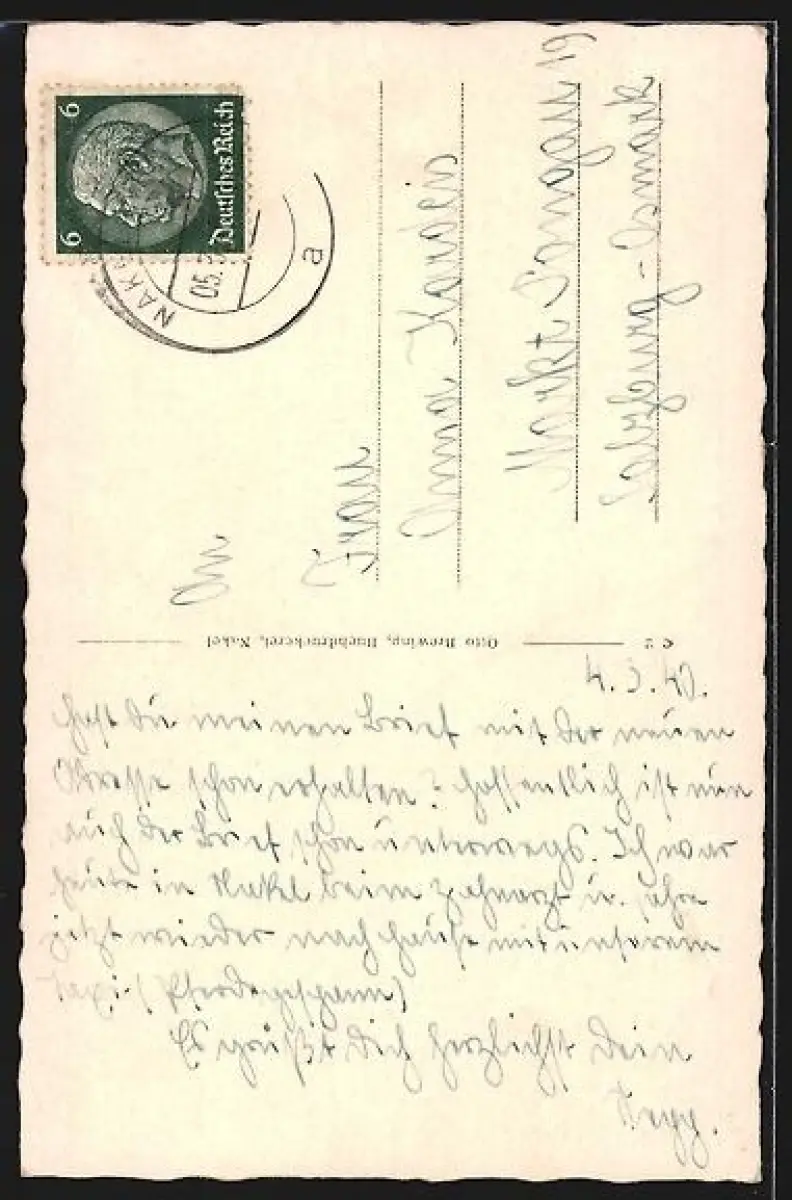 6 6
Deutsches Reich
NAK
05.3
a
An
Frau
Anna
Markt Pongau 19
Salzburg - Osmark
Otto Brewing, Buchdruckerei, Nakel
C 2
4.3.40.
Hast Du meinen Brief mit der neuen
Adresse schon erhalten? Hoffentlich ist nun
auch der Brief schon unterwegs. Ich war
heute in Nakel beim Zahnarzt u. fahre
jetzt wieder nach Hause mit unserem
Taxi (Pferdegespann)
Es grüßt Dich herzlichst Dein